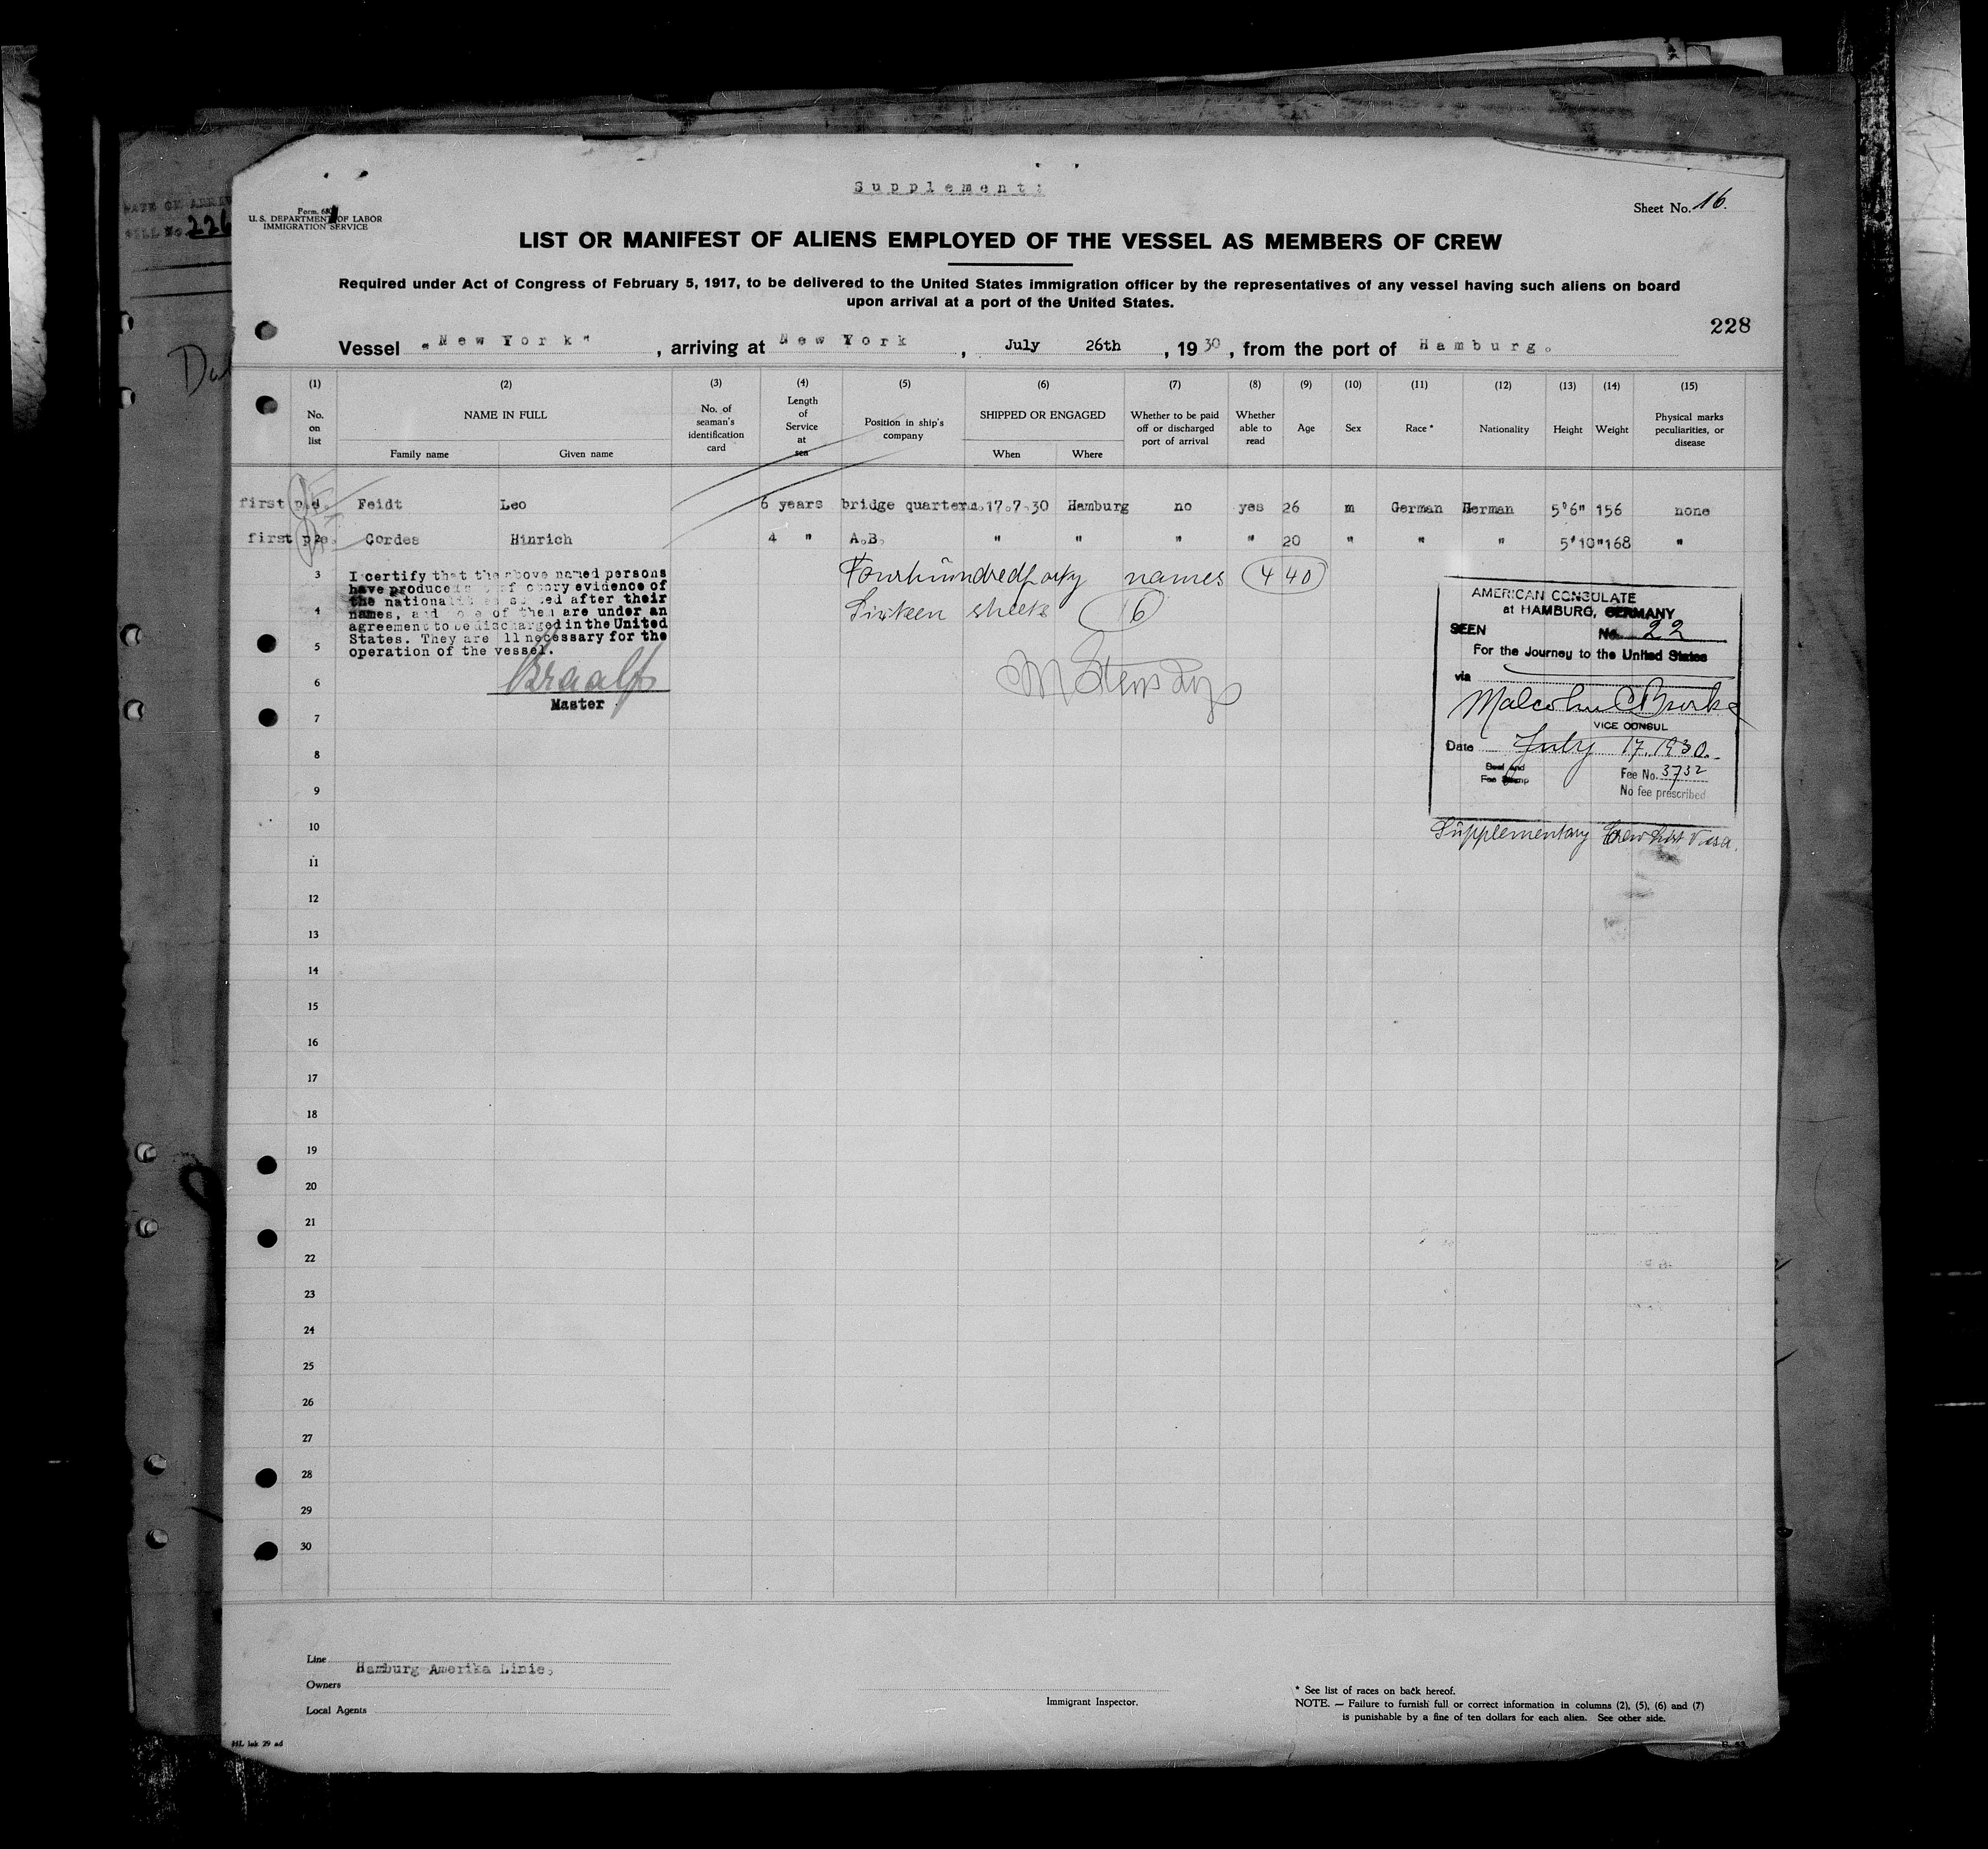 Supplement:
Form 680
U. S. DEPARTMENT OF LABOR
IMMIGRATION SERVICE
Sheet No. 16.
LIST OR MANIFEST OF ALIENS EMPLOYED OF THE VESSEL AS MEMBERS OF CREW
Required under Act of Congress of February 5, 1917, to be delivered to the United States immigration officer by the representatives of any vessel having such aliens on board
upon arrival at a port of the United States.
228
Vessel "New York", arriving at New York, July 26th, 1930, from the port of Hamburg.
(1) (2) (3) (4) (5) (6) (7) (8) (9) (10) (11) (12) (13) (14) (15)
No. on list
NAME IN FULL
Family name Given name
No. of seaman's identification card
Length of Service at sea
Position in ship's company
SHIPPED OR ENGAGED
When Where
Whether to be paid off or discharged port of arrival
Whether able to read
Age
Sex
Race *
Nationality
Height
Weight
Physical marks peculiarities, or disease
first Feidt Leo 6 years bridge quarterm. 17.7.30 Hamburg no yes 26 m German German 5'6" 156 none
first Cordes Hinrich 4 " A.B. " " " " 20 " " " 5'10" 168 "
3
4
5
6
7
8
9
10
11
12
13
14
15
16
17
18
19
20
21
22
23
24
25
26
27
28
29
30
I certify that the above named persons
have produced evidence of
the nationalities after their
names, and of them are under an
agreement to be discharged in the United
States. They are all necessary for the
operation of the vessel.
Master
Fourhundredforty names (440)
Sixteen sheets (16)
AMERICAN CONSULATE
at HAMBURG, GERMANY
SEEN No. 22
For the Journey to the United States
via
Malcolm C Burke
VICE CONSUL
Date July 17, 1930.
Seal and
Fee Stamp
Fee No. 3732
No fee prescribed
Supplementary Crew List Visa.
Line
Hamburg Amerika Linie,
Owners
Local Agents
Immigrant Inspector.
* See list of races on back hereof.
NOTE. — Failure to furnish full or correct information in columns (2), (5), (6) and (7)
is punishable by a fine of ten dollars for each alien. See other side.